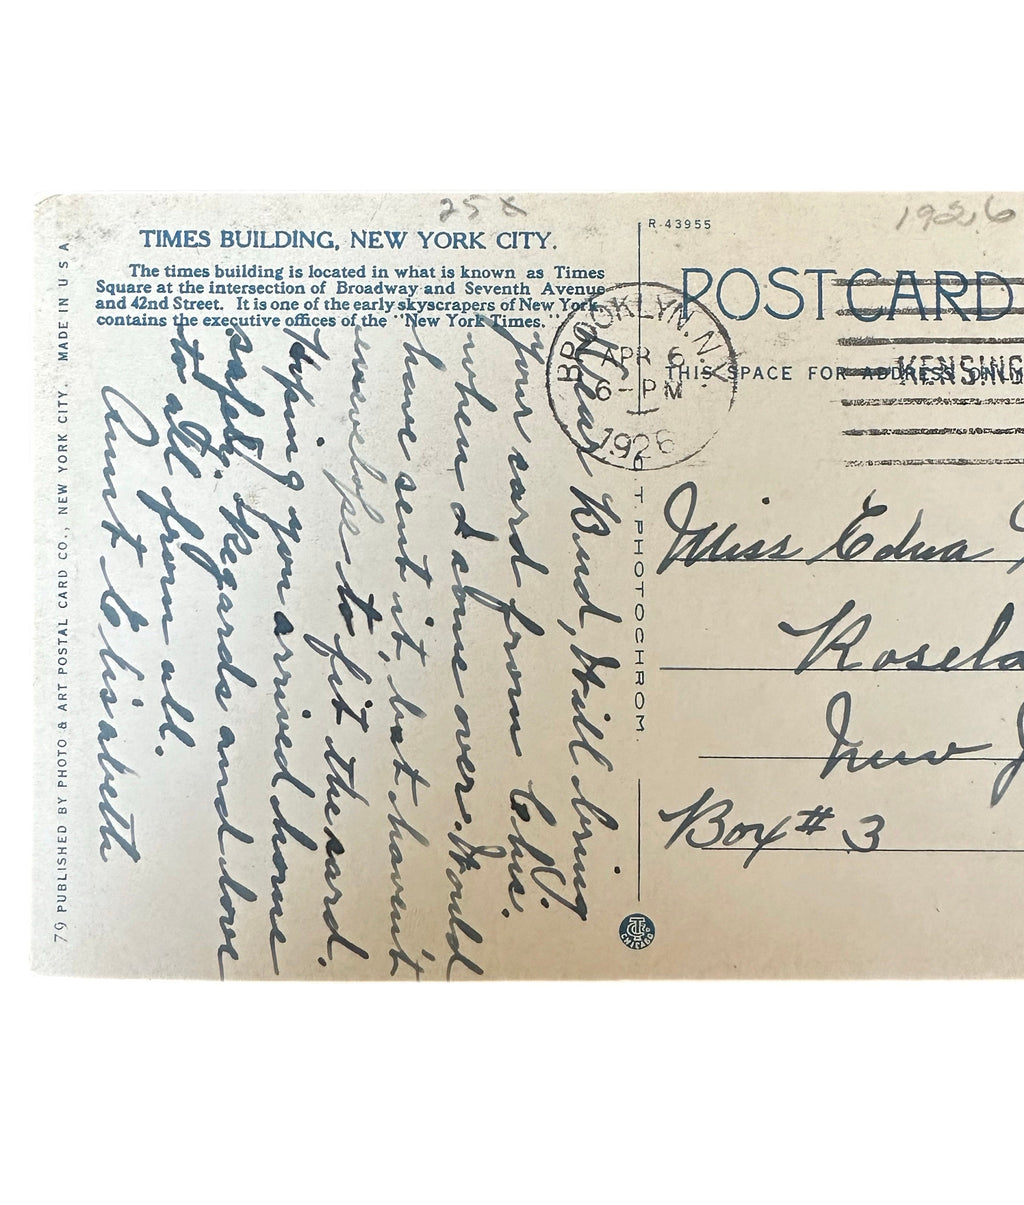 25¢
1926
TIMES BUILDING, NEW YORK CITY.
The times building is located in what is known as Times
Square at the intersection of Broadway and Seventh Avenue
and 42nd Street. It is one of the early skyscrapers of New York,
contains the executive offices of the "New York Times."
Dear Bud, Will bring
your card from Chi.
when I come over. Would
have sent it, but haven't
envelope to fit the card.
Hoping you arrived home
safely. Regards and love
to all from all.
Aunt Elisabeth
79 PUBLISHED BY PHOTO & ART POSTAL CARD CO., NEW YORK CITY. MADE IN U S A
R-43955
POST CARD
THIS SPACE FOR ADDRESS ONL
BROOKLYN, N.Y.
APR 6
6-PM
1926
KENSING
C. T. PHOTOCHROM.
Miss Edna
Rosela
New J
Box # 3
CHICAGO